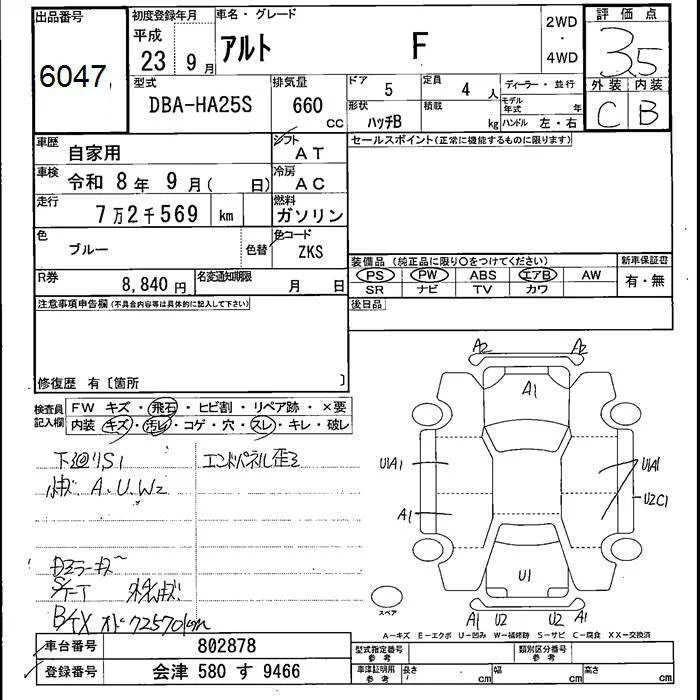 出品番号
6047
初度登録年月
平成
23年 9月
車名・グレード
アルト F
2WD
・
4WD
評価点
3.5
外装 内装
C B
型式
DBA-HA25S
排気量
660
CC
ドア
5
定員
4 人
形状
ハッチB
積載
kg
ディーラー・並行
モデル年式 年
ハンドル 左・右
車歴
自家用
シフト
AT
車検
令和 8年 9月( 日)
冷房
AC
走行
7万2千569 km
燃料
ガソリン
色
ブルー
色替
色コード
ZKS
R券
8,840 円
名変通知期限
月 日
セールスポイント(正常に機能するものに限ります)
装備品 (純正品に限り○をつけてください)
PS PW ABS エアB AW
SR ナビ TV カワ
新車保証書
有・無
後日品
注意事項申告欄(不具合内容等は具体的に記入して下さい)
修復歴 有〔箇所 〕
検査員記入欄
FW キズ・飛石・ヒビ割・リペア跡・×要
内装 キズ・汚レ・コゲ・穴・スレ・キレ・破レ
下廻リS1
エンドパネル歪ミ
A.U.W2
Dミラーキズ
B/TX
72570km
A2 A2
A1
U1A1
A1
U1A1
U2C1
U1
A1 U2 U2 A1
スペア
A-キズ E-エクボ U-凹み W-補修跡 S-サビ C-腐食 XX-交換済
車台番号
802878
登録番号
会津 580 す 9466
型式指定番号
参考
類別区分番号
参考
車庫証明用
参考
長さ cm
幅 cm
高さ cm